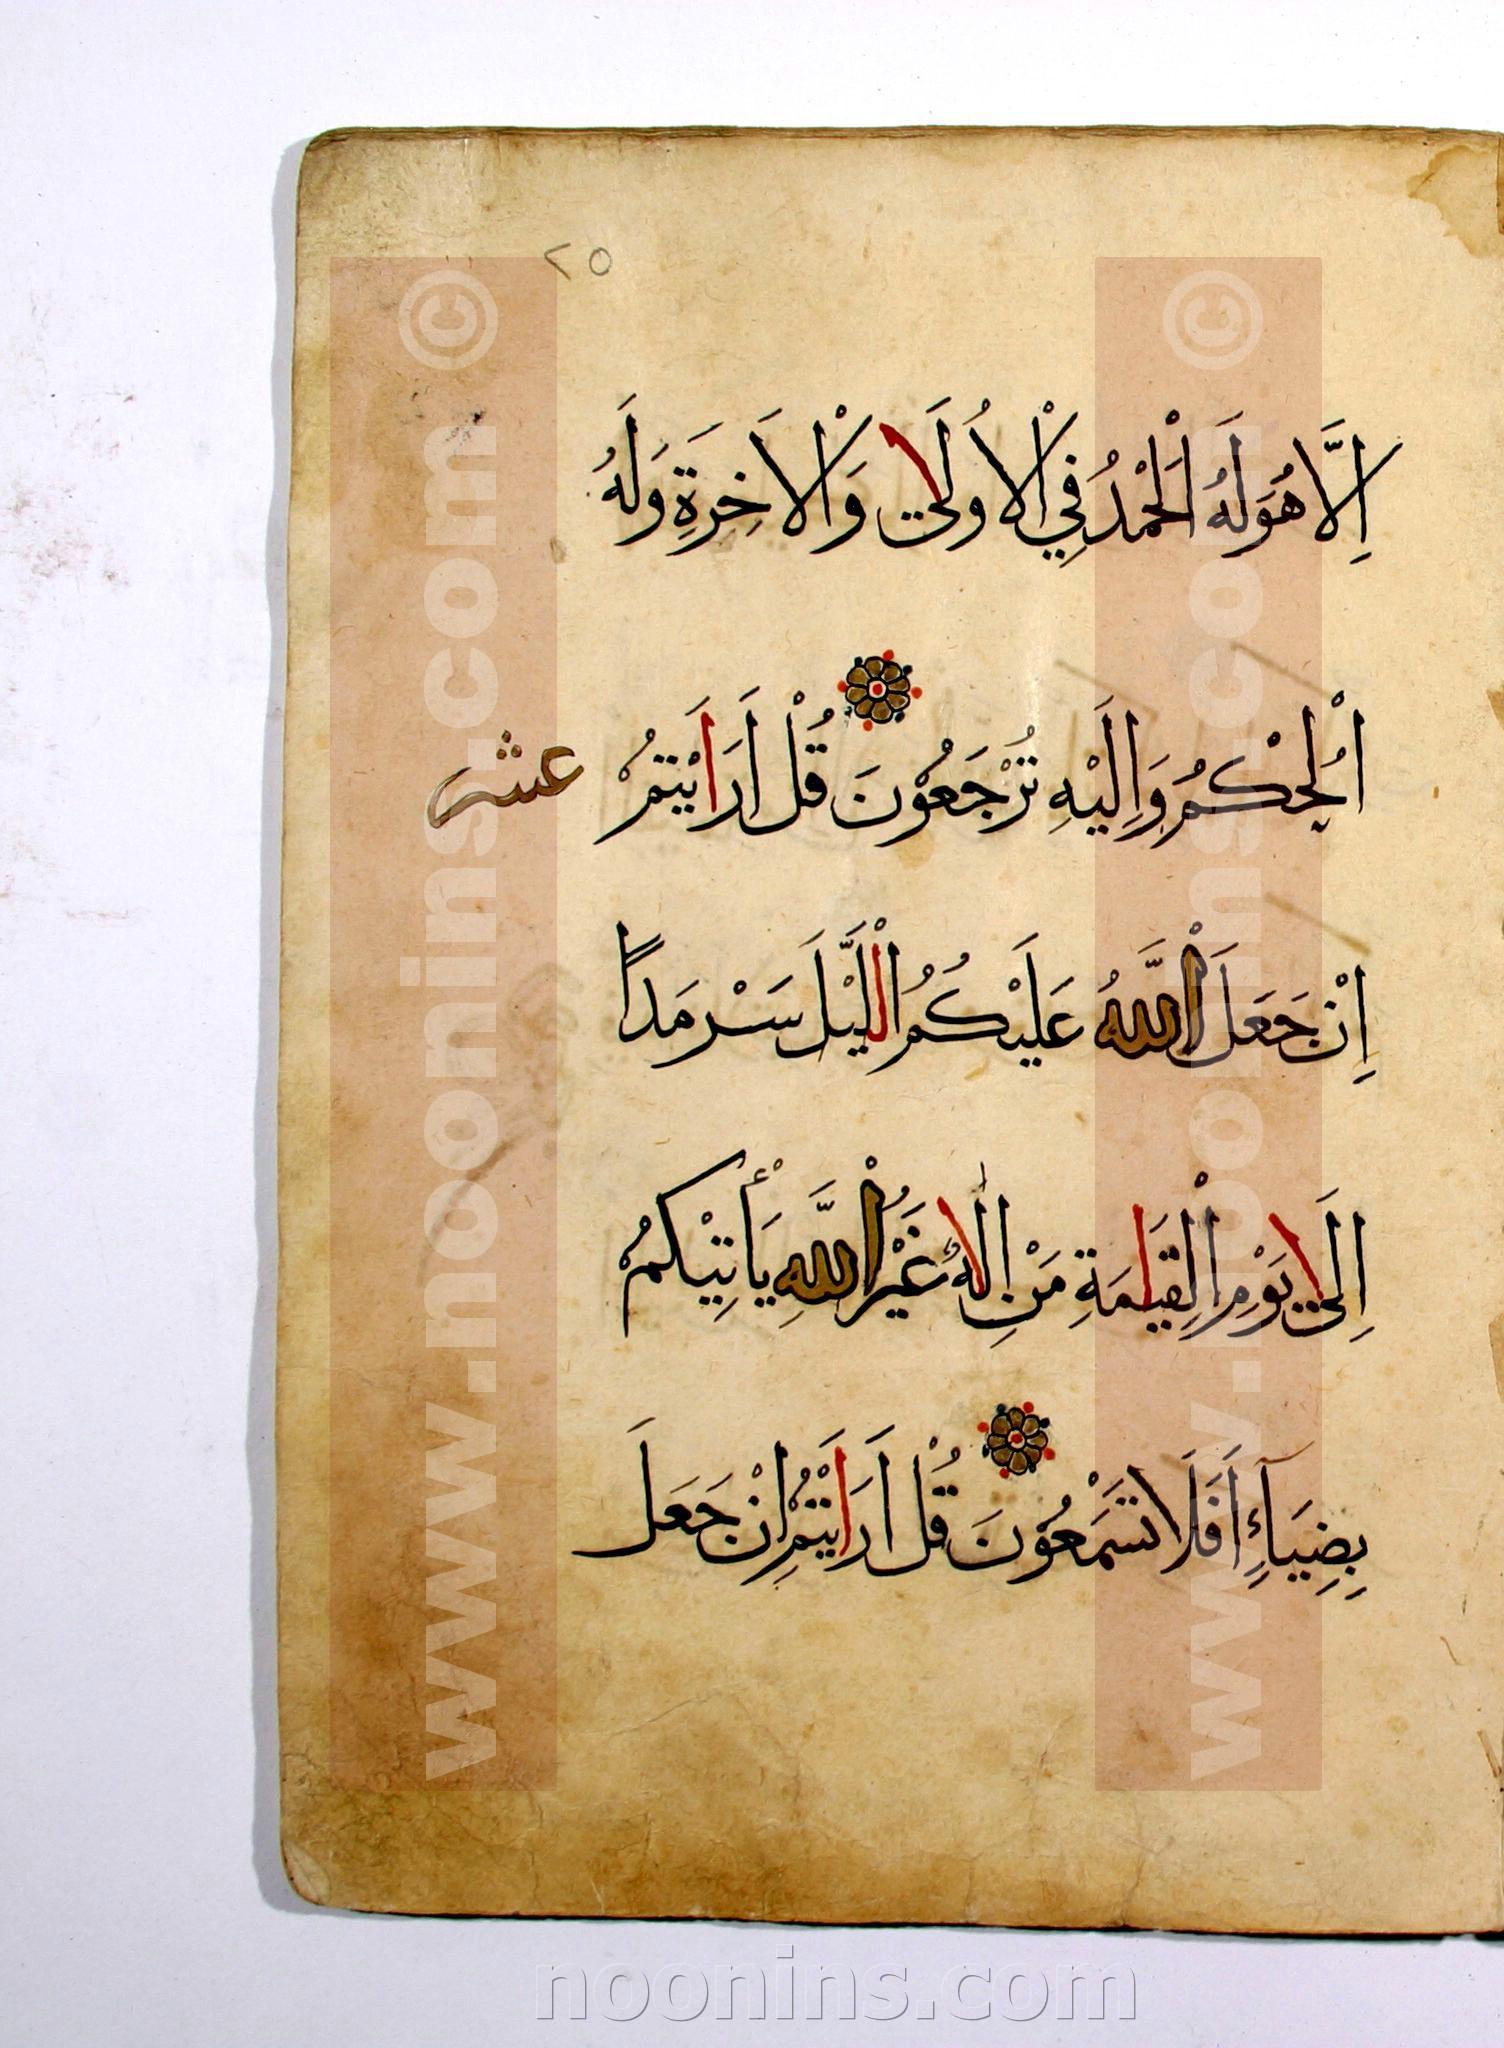 ٢٥
اِلَّا هُوَ لَهُ الْحَمْدُ فِي الْاُولَىٰ وَالْاَخِرَةِ وَلَهُ
الْحُكْمُ وَاِلَيْهِ تُرْجَعُوْنَ قُلْ اَرَاَيْتُمْ
عشر
اِنْ جَعَلَ اللَّهُ عَلَيْكُمُ الْلَّيْلَ سَرْمَدًا
اِلَىٰ يَوْمِ الْقِيَامَةِ مَنْ اِلٰهٌ غَيْرُ اللَّهِ يَأْتِيْكُمْ
بِضِيَآءٍ اَفَلَا تَسْمَعُوْنَ قُلْ اَرَاَيْتُمْ اِنْ جَعَلَ
www.noonins.com ©
www.noonins.com ©
noonins.com